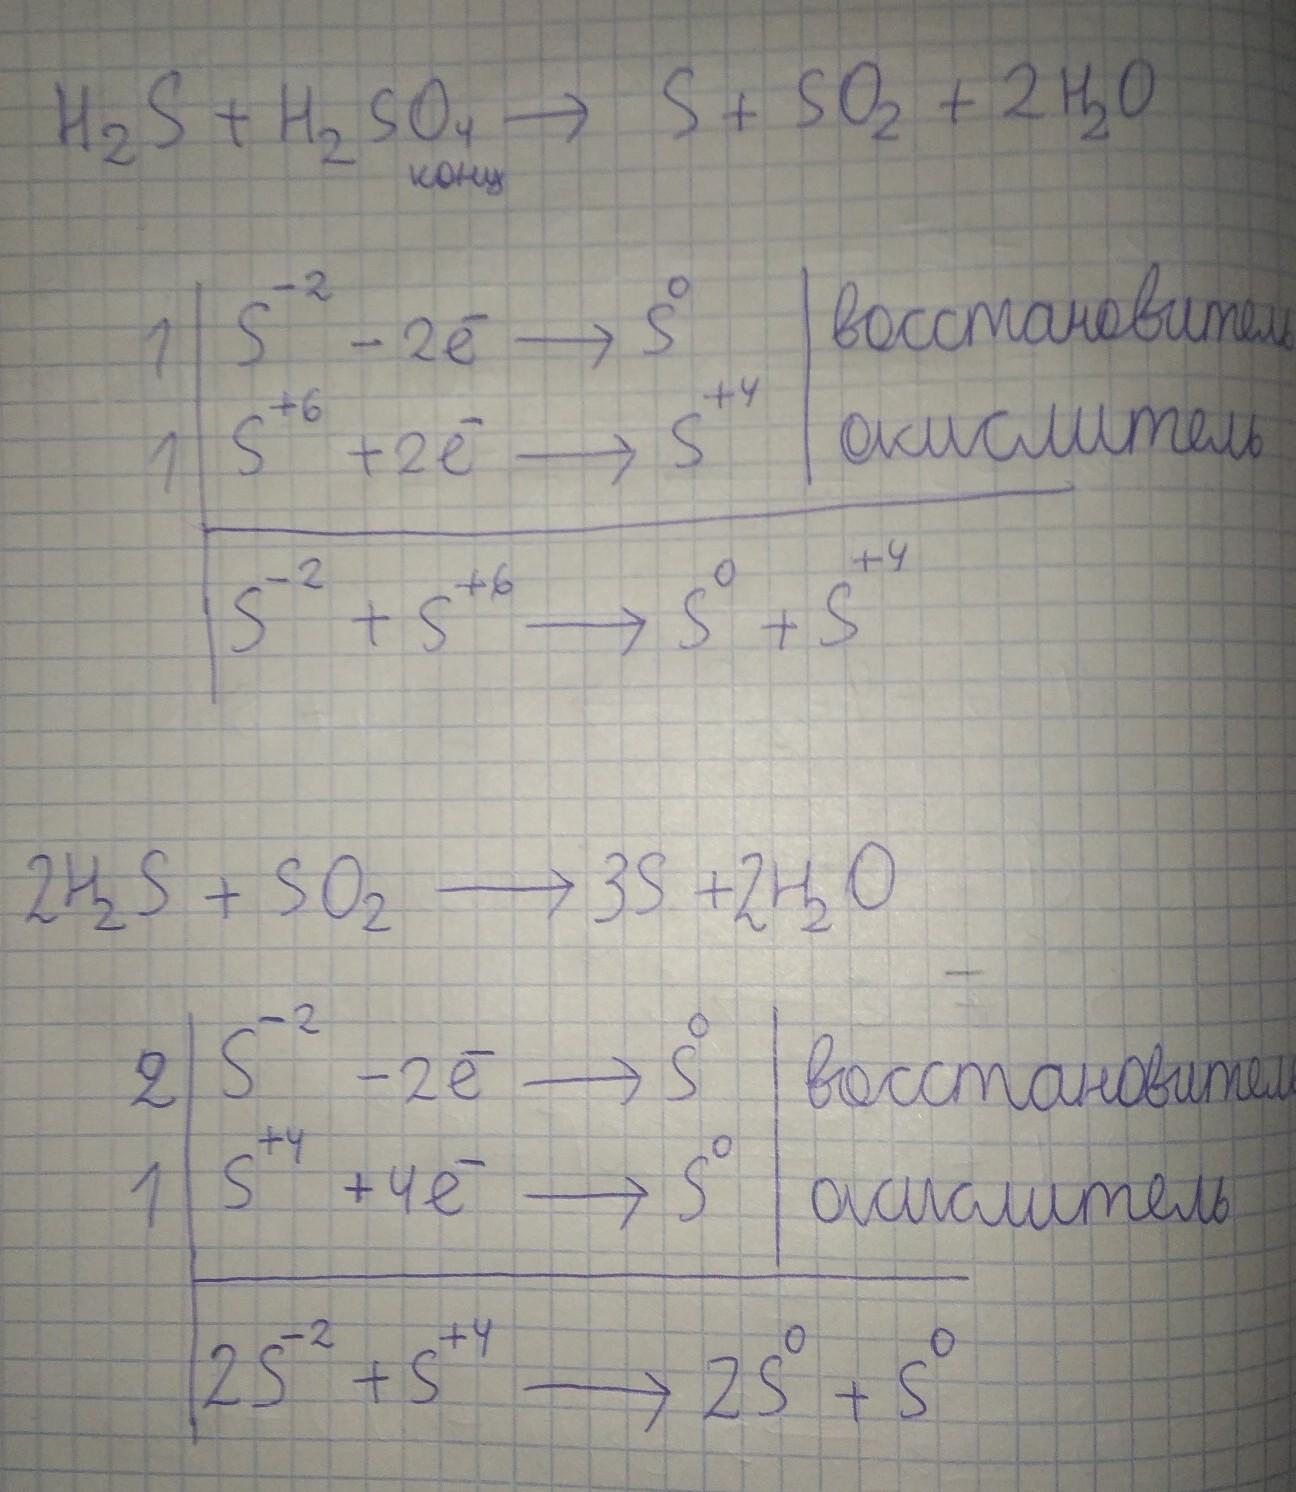 H₂S + H₂SO₄ → S + SO₂ + 2H₂O
конц
1 | S⁻² - 2ē → S⁰ | восстановитель
1 | S⁺⁶ + 2ē → S⁺⁴ | окислитель
S⁻² + S⁺⁶ → S⁰ + S⁺⁴
2H₂S + SO₂ → 3S + 2H₂O
2 | S⁻² - 2ē → S⁰ | восстановитель
1 | S⁺⁴ + 4ē → S⁰ | окислитель
2S⁻² + S⁺⁴ → 2S⁰ + S⁰